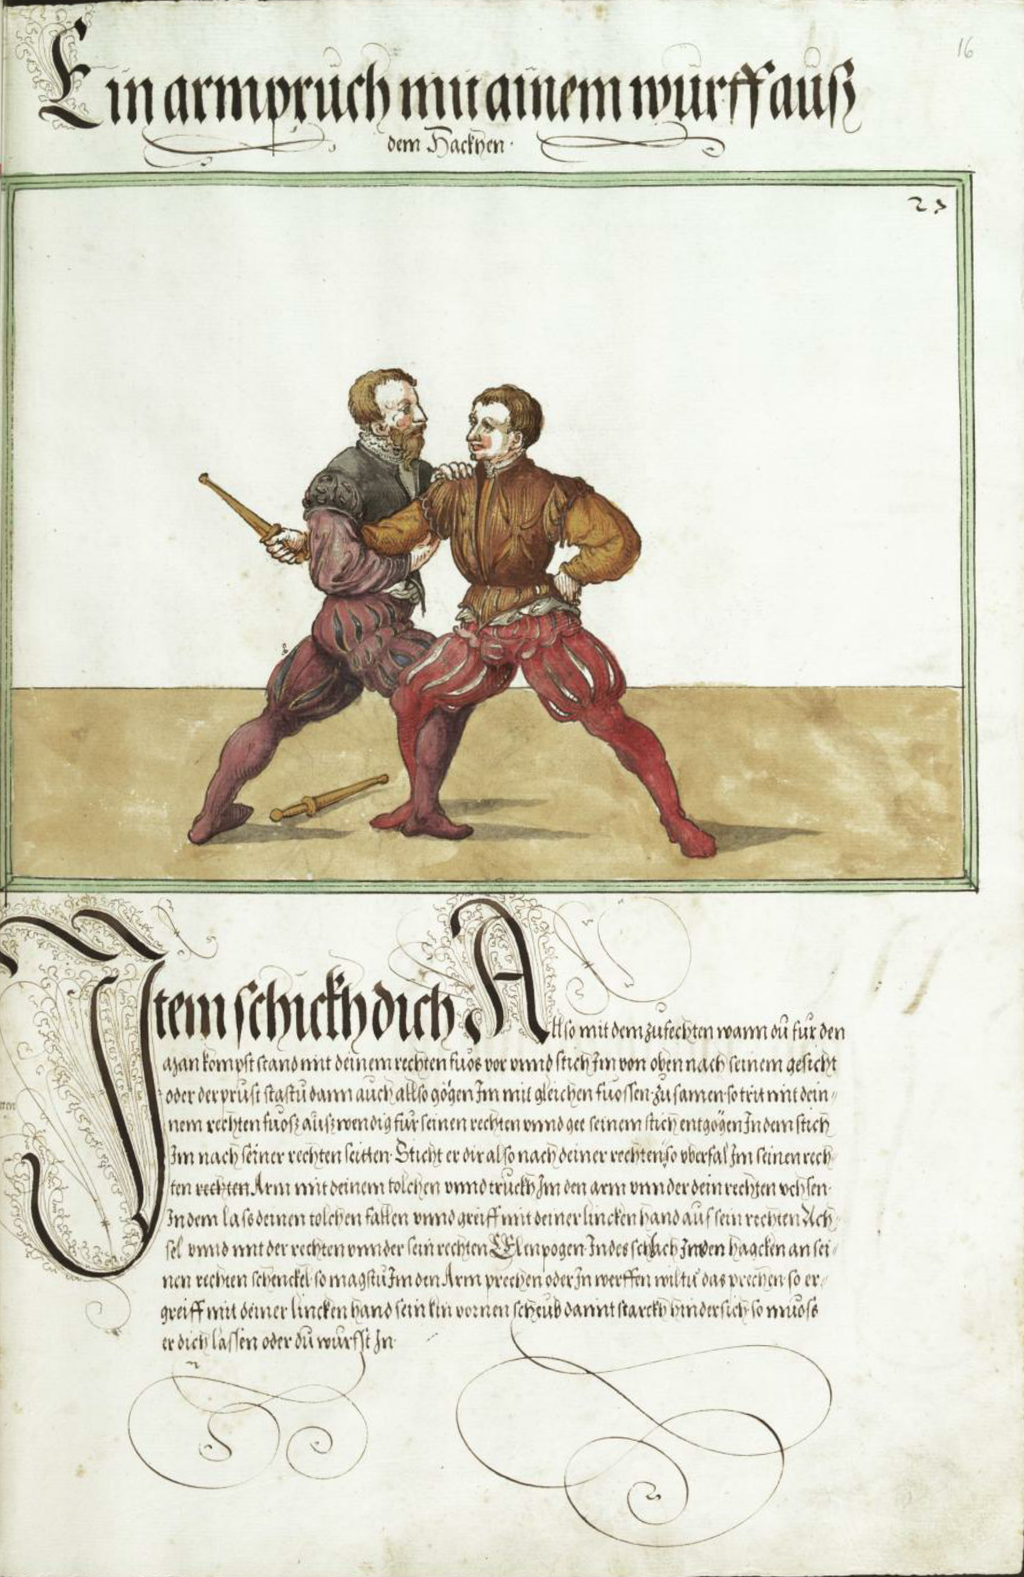 16
Ein armpruch mit ainem wurff auß
dem Hackhen.
23
Item schickh dich Allso mit dem zufechten wann du fur den
man kompst stand mit deinem rechten fuos vor vnnd stich Im von oben nach seinem gesicht
oder der prust stastu dann auch allso gögen Im mit gleichen fuossen zusamen so trit mit dein-
nem rechten fuosz ausz wendig fur seinen rechten vnnd gee seinem stich entgögen Indem stich
Im nach seiner rechten seitten. Sticht er dir also nach deiner rechten so vberfal Im seinen rech-
ten rechten Arm mit deinem tolchen vnnd truckh Im den arm vnnder dein rechten vchsen.
Indem laso deinen tolchen fallen vnnd greiff mit deiner lincken hand auf sein rechten Ach-
sel vnnd mit der rechten vnnder sein rechten Elenpogen Indes schlach In den hagcken an sei-
nen rechten schenckel so magstu Im den Arm prechen oder In werffen wiltu das prechen so er-
greiff mit deiner lincken hand sein kin vornen scheub damit starckh hindersich so muoss
er dich lassen oder du wurfst In.